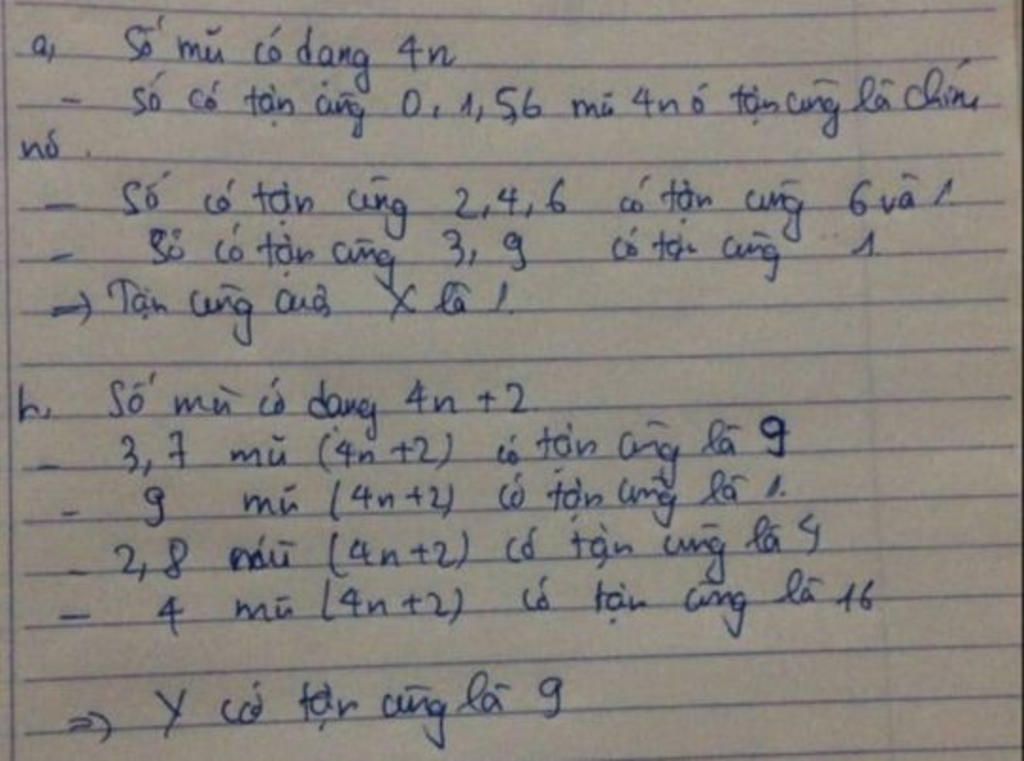 a, Số mũ có dạng 4n
- Số có tận cùng 0, 1, 5, 6 mũ 4n có tận cùng là chính
nó.
- Số có tận cùng 2, 4, 6 có tận cùng 6 và 1
- Số có tận cùng 3, 9 có tận cùng 1
-> Tận cùng của X là 1.
b, Số mũ có dạng 4n + 2
- 3, 7 mũ (4n+2) có tận cùng là 9
- 9 mũ (4n+2) có tận cùng là 1.
- 2, 8 mũ (4n+2) có tận cùng là 4
- 4 mũ (4n+2) có tận cùng là 16
=> Y có tận cùng là 9